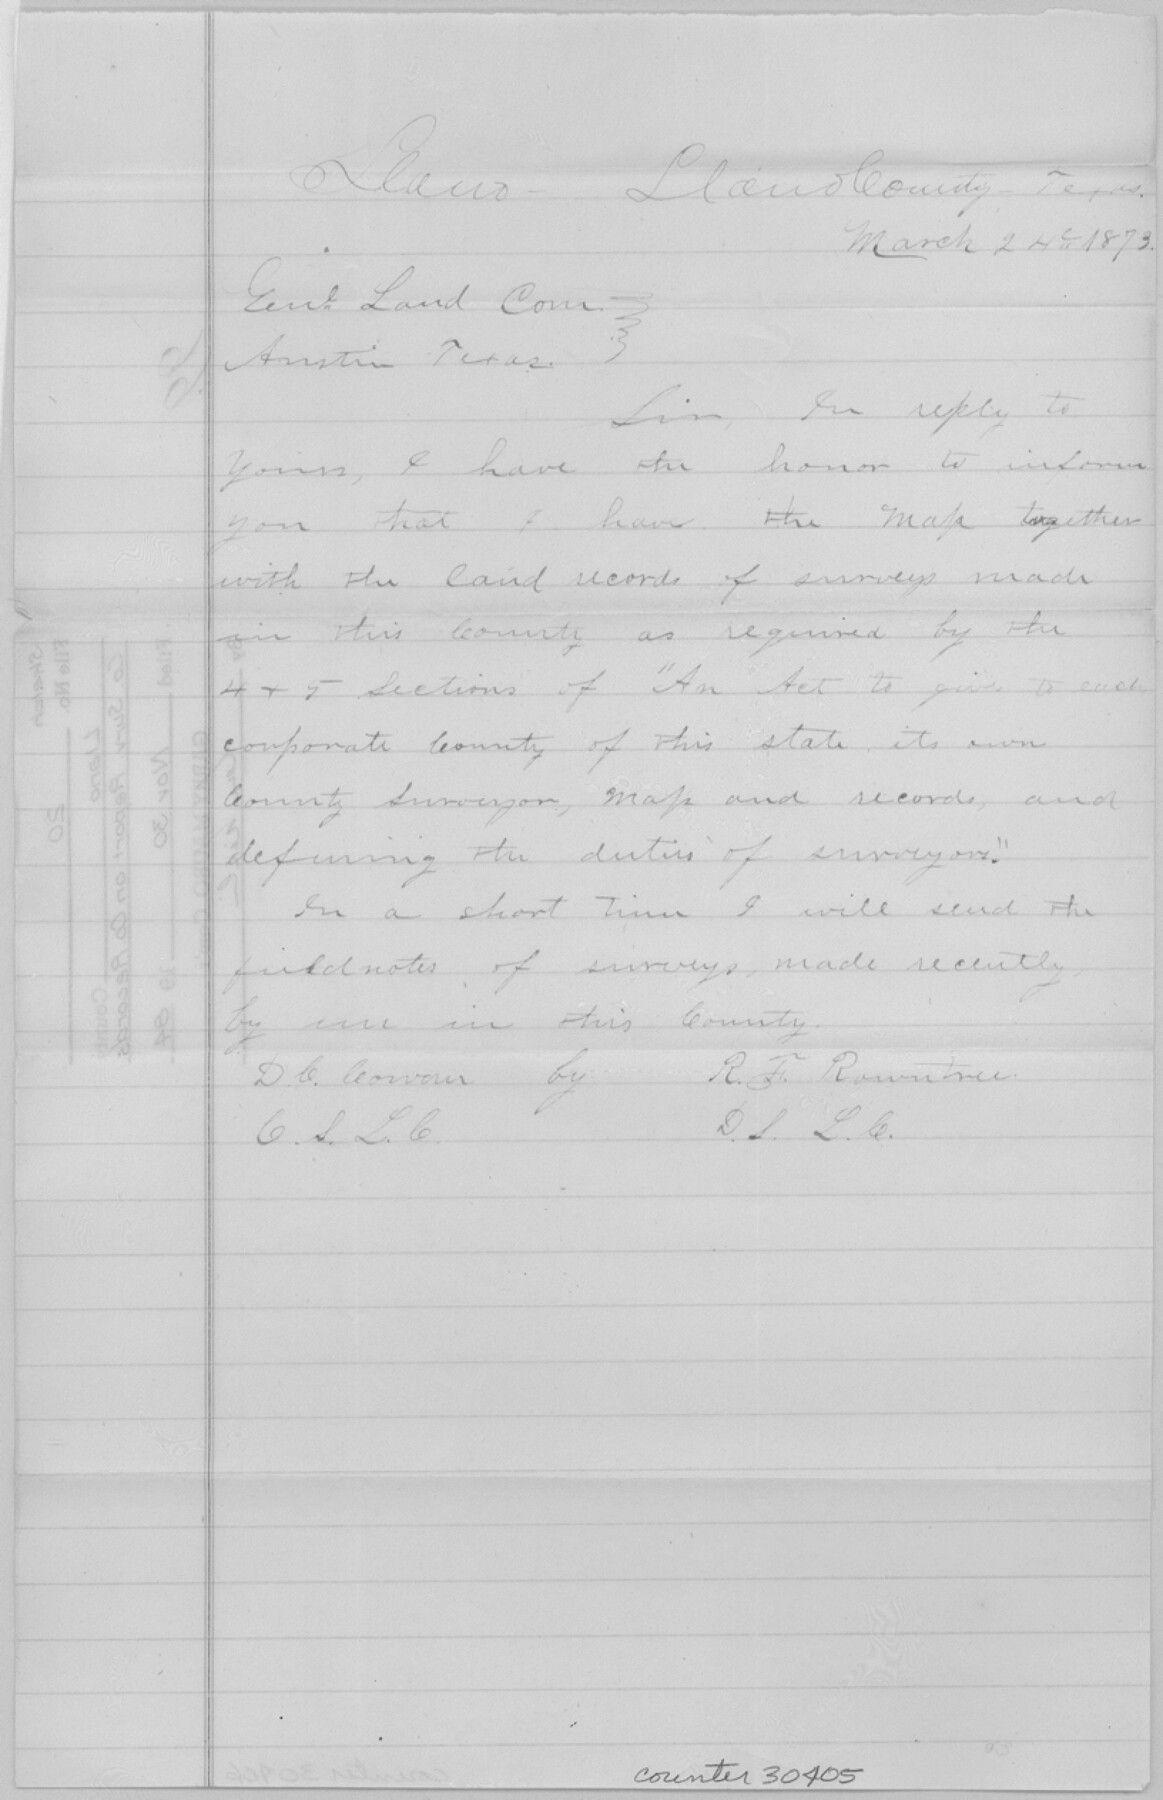 Llano - Llano County - Texas.
March 24th 1873.
Genl. Land Com.
Austin Texas.
Sir, In reply to
yours, I have the honor to inform
you that I have the Map together
with the land records of surveys made
in this County as required by the
4 + 5 Sections of "An Act to give to each
corporate County of this state its own
County Surveyor, Map and records, and
defining the duties of surveyors."
In a short time I will send the
fieldnotes of surveys, made recently,
by me in this County.
D. C. Cowan by R. F. Rowntree
C. S. L. C. D. S. L. C.
counter 30405
File No. 20
Llano
Co. Surv. Report on Co Records
Filed Nov 30